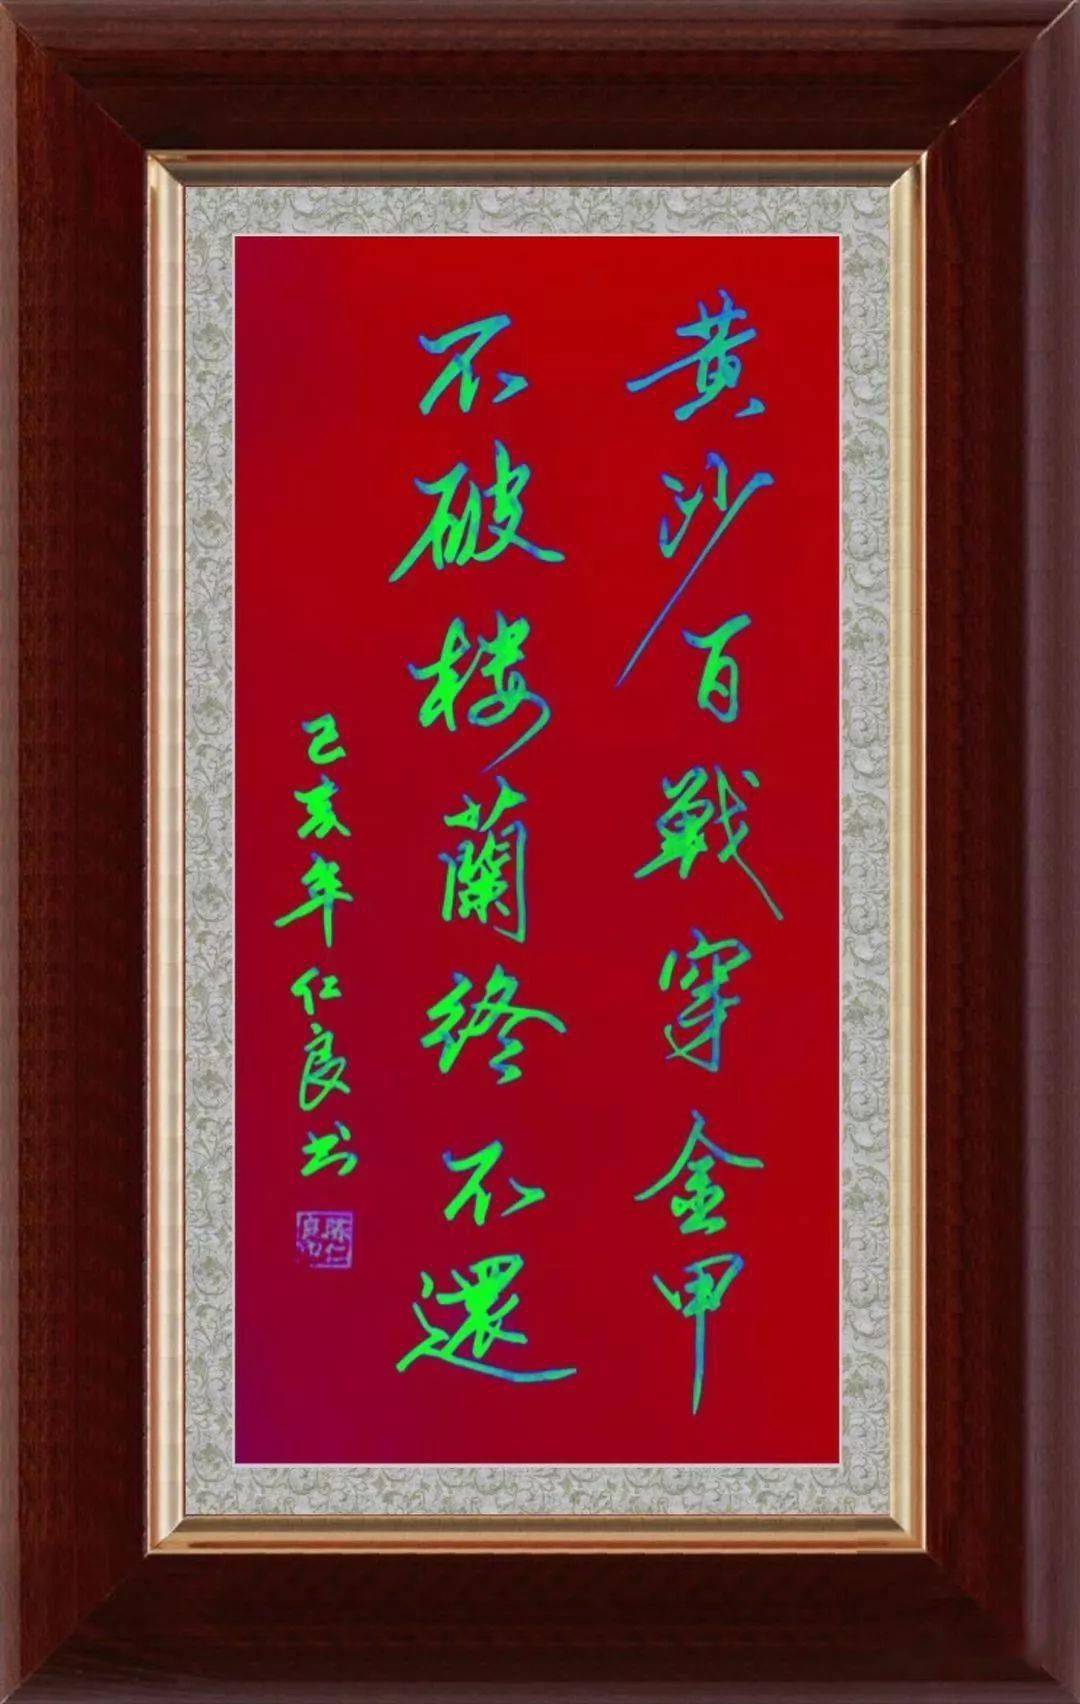 黄沙百戰穿金甲
不破楼蘭终不還
己亥年仁良书
陈仁良印